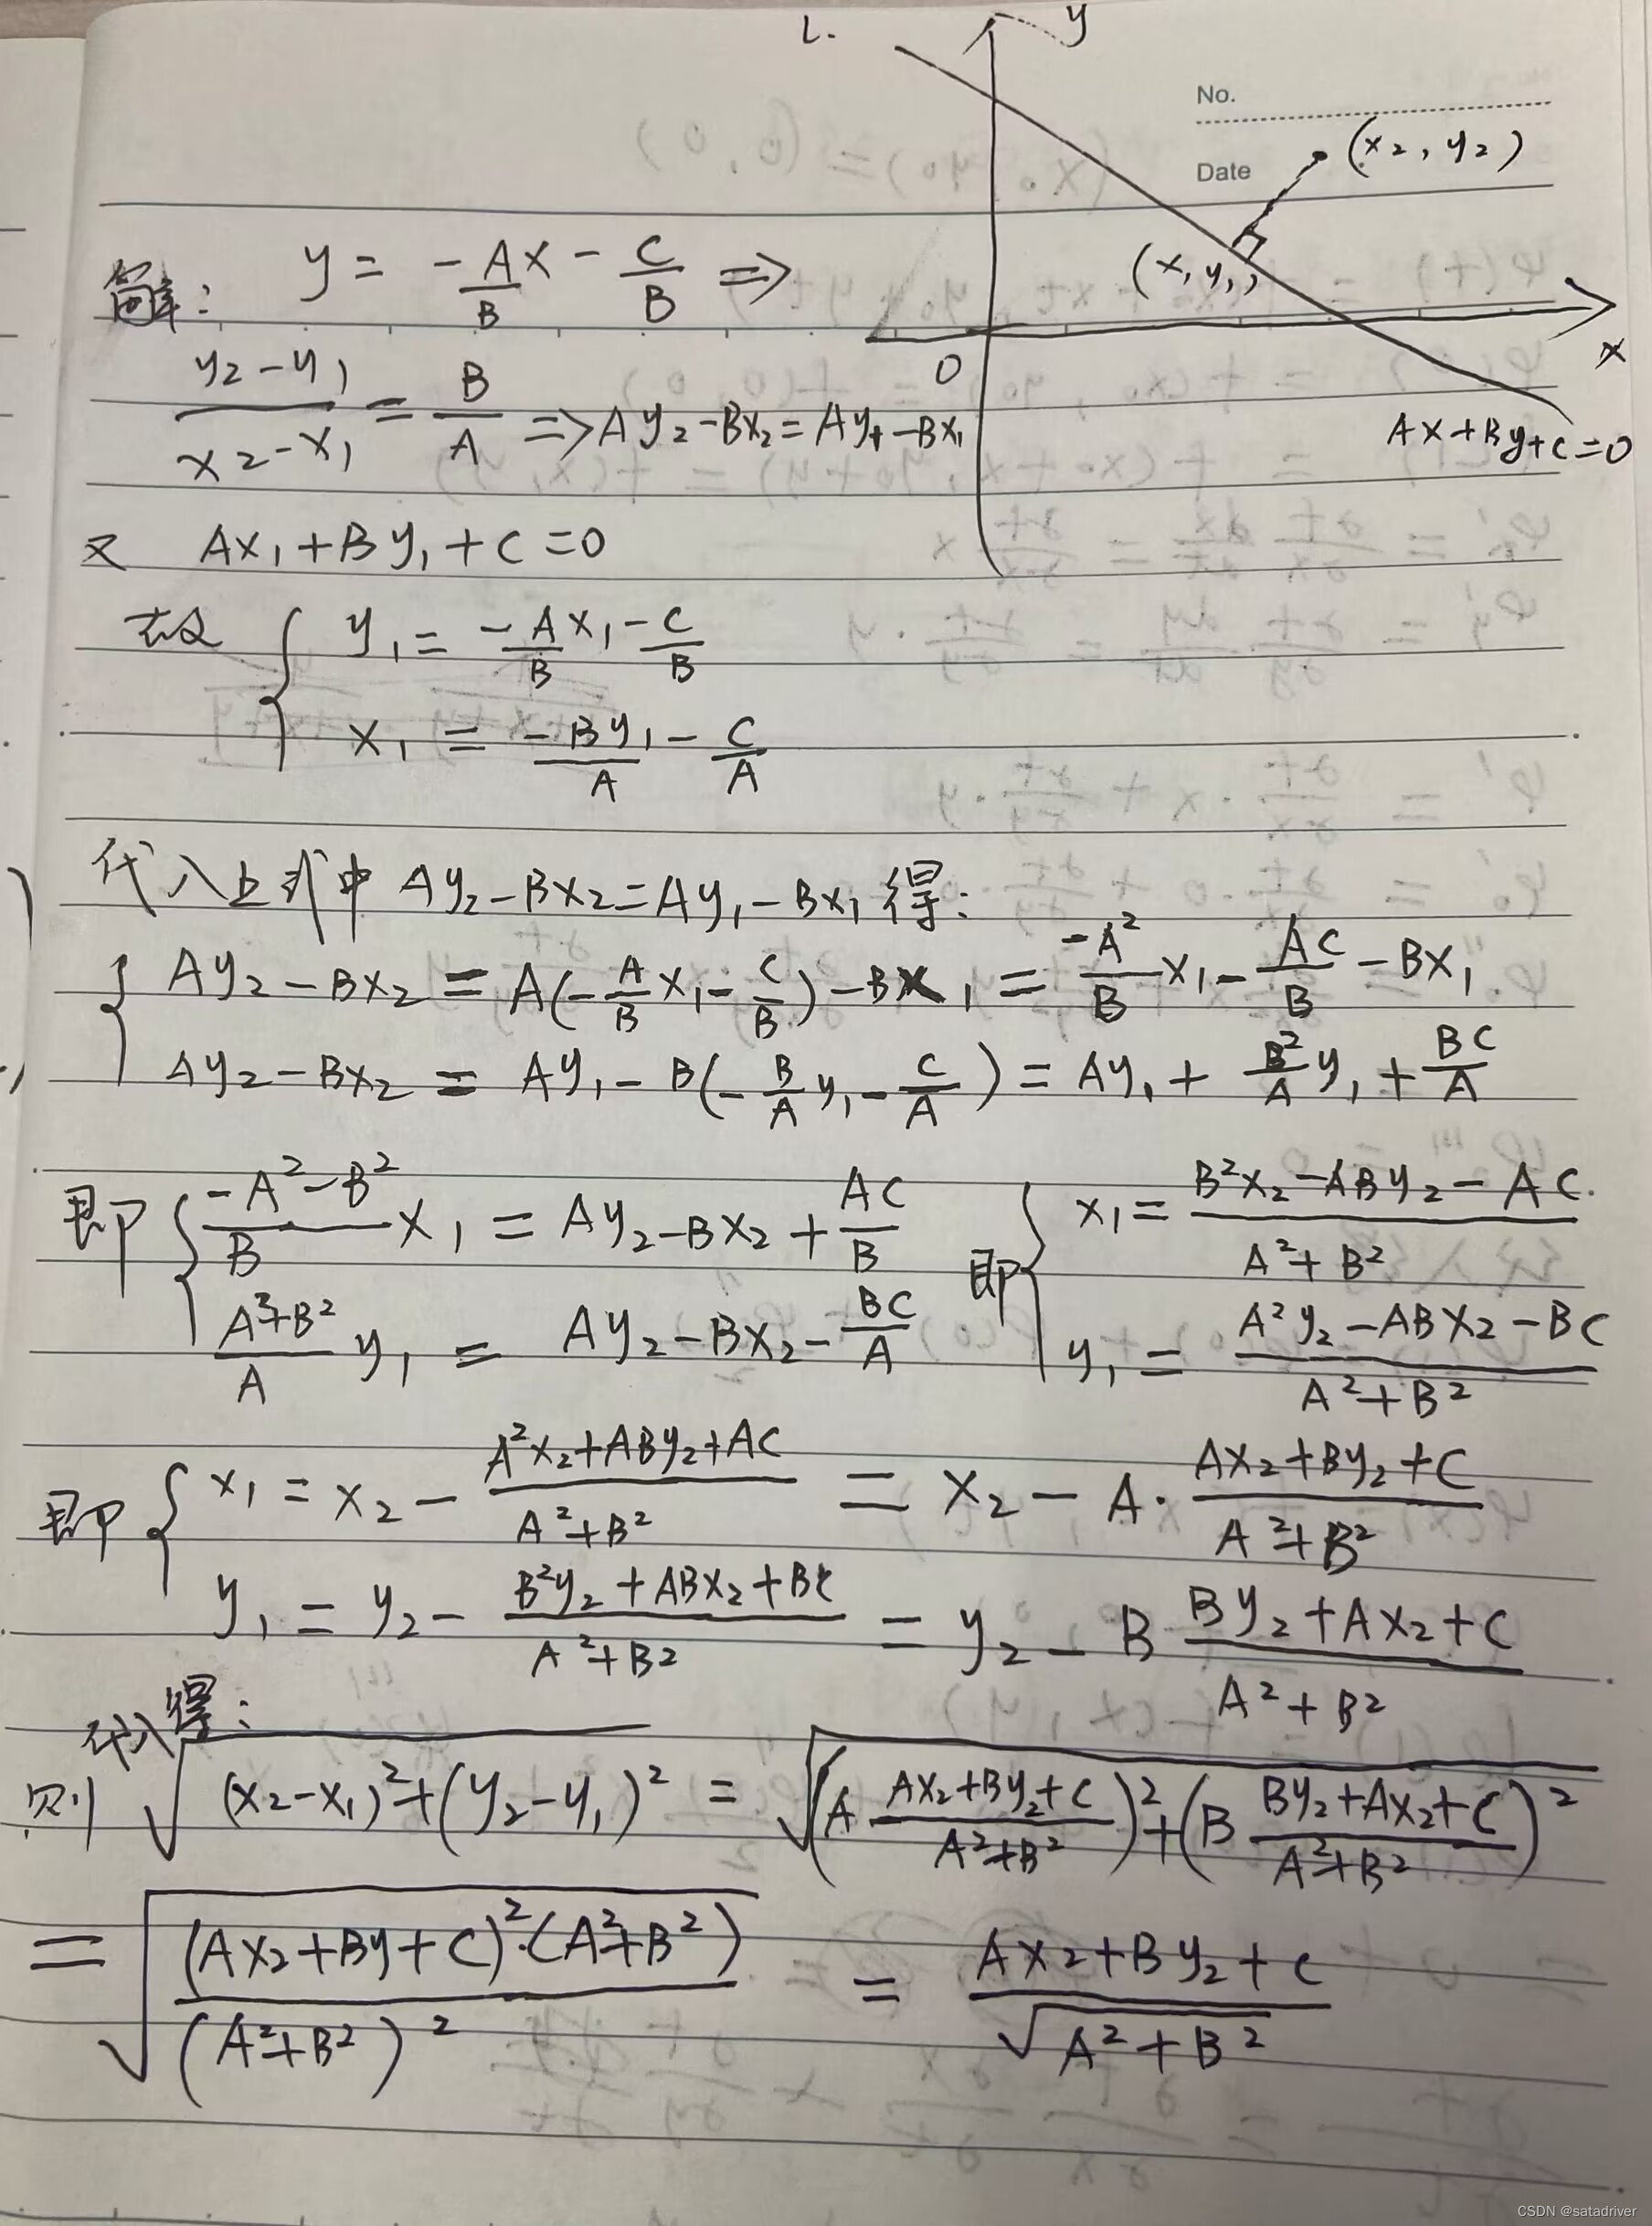 L.
y
No.
Date
(x₂, y₂)
(x₁ y₁)
0
x
Ax+By+C=0
解: y = -A/B x - C/B ⇒
(y₂-y₁)/(x₂-x₁) = B/A ⇒ Ay₂-Bx₂=Ay₁-Bx₁
又 Ax₁+By₁+C=0
故 { y₁ = -A/B x₁ - C/B
x₁ = -By₁/A - C/A
代入上式中 Ay₂-Bx₂=Ay₁-Bx₁ 得:
{ Ay₂-Bx₂ = A(-A/B x₁ - C/B) - Bx₁ = -A²/B x₁ - AC/B - Bx₁
Ay₂-Bx₂ = Ay₁ - B(-B/A y₁ - C/A) = Ay₁ + B²/A y₁ + BC/A
即 { (-A²-B²)/B x₁ = Ay₂-Bx₂ + AC/B 即 { x₁ = (B²x₂-ABy₂-AC)/(A²+B²)
(A²+B²)/A y₁ = Ay₂-Bx₂ - BC/A y₁ = (A²y₂-ABx₂-BC)/(A²+B²)
即 { x₁ = x₂ - (A²x₂+ABy₂+AC)/(A²+B²) = x₂ - A·(Ax₂+By₂+C)/(A²+B²)
y₁ = y₂ - (B²y₂+ABx₂+BC)/(A²+B²) = y₂ - B (By₂+Ax₂+C)/(A²+B²)
代入得:
则 √((x₂-x₁)²+(y₂-y₁)²) = √((A (Ax₂+By₂+C)/(A²+B²))²+(B (By₂+Ax₂+C)/(A²+B²))²)
= √((Ax₂+By+C)²·(A²+B²)/(A²+B²)²) = (Ax₂+By₂+C)/√(A²+B²)
CSDN @satadriver